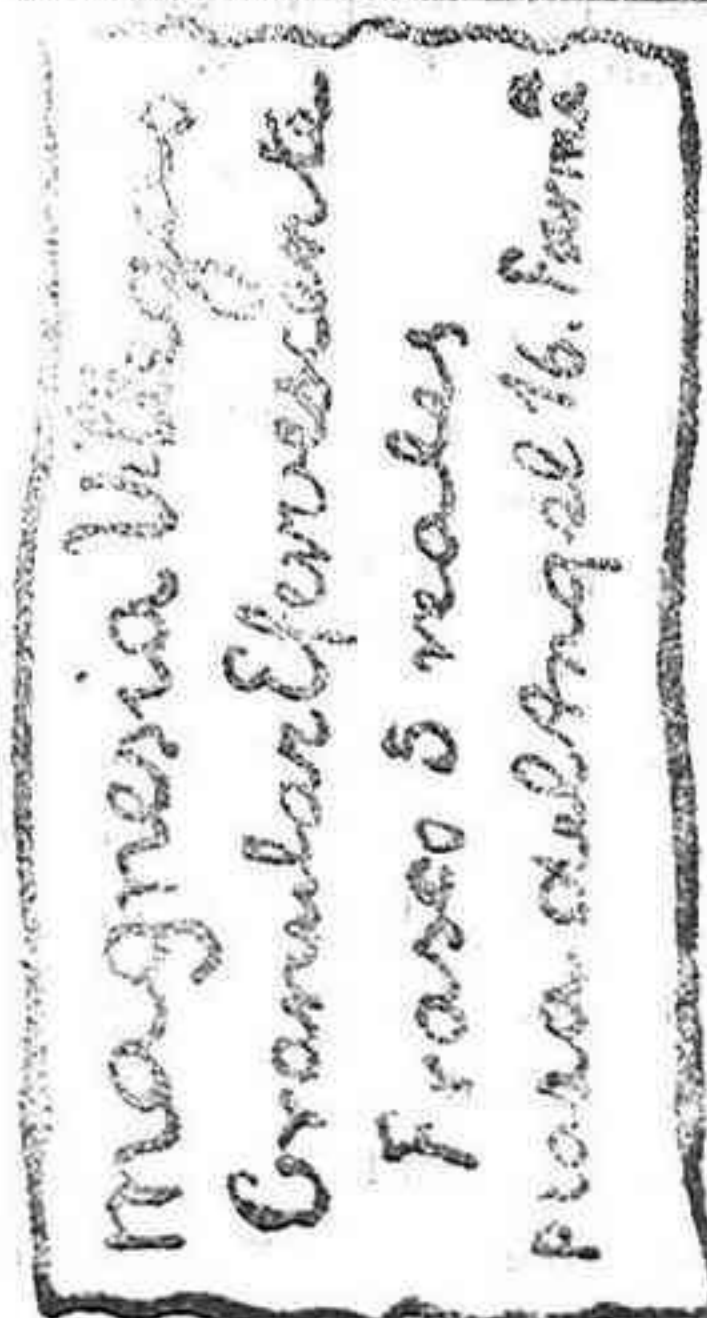 Magnesia
Granular Efervescente
Frasco 5 reales
plaza del Angel 16. Farmª